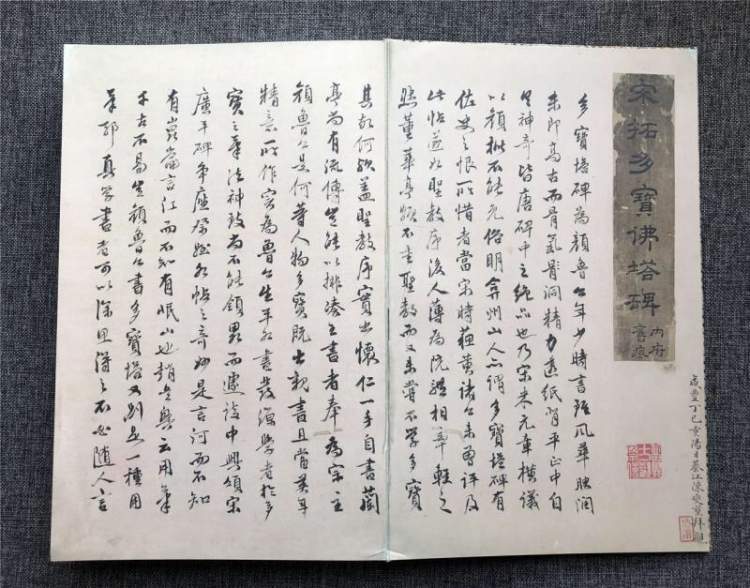 宋拓多寶佛塔碑
內府
咸豐丁巳重陽日綦江陳
多寶塔碑為顏魯公年少時書雖風華映潤
未即高古而骨氣洞精力透紙背平正中自
足神奇皆唐碑中之絕品也乃宋米元章橫議
以顏不能免俗明弇州山人亦謂多寶塔碑有
佐史之恨所惜者當宋時蘇黃諸公未曾評及
此帖遂如聖教序後人薄為院體相率輕之
董華亭頗不喜聖教而又未嘗不學多寶
其故何歟蓋聖教序實出懷仁一手自書蘭
亭尚有流傳豈能以排湊之書者奉為宗主
顏魯公是何等人物多寶既出親書且當英年
精意所作實為魯公生平書發學者於多
寶之筆法神致尚不能領略而遽談中興頌宋
廣平碑爭座祭姪帖之奇妙是言河而不知
有崑崙言江而不知有岷山也趙吳興云用筆
千古不易豈顏魯公書多寶塔又別是一種用
筆耶真學書者可以深思得之不必隨人言